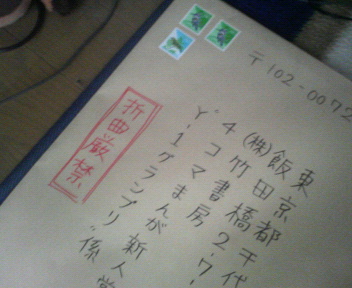 〒102-0072
東京都千代
飯田橋2-7-
(株)竹書房
4コマまんが新人賞
"Y-1グランプリ"係
折曲厳禁